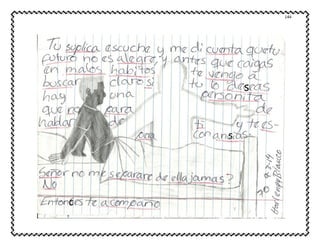 144
Tu suplica escuche y me di cuenta que tu
futuro no es alegre, y antes que caigas
en malos habitos te vengo a
buscar claro si tu lo deseas
hay una personita
que no para de
hablar de ti y te es-
ona con ansias
Señor no me separare de ella jamas?
No
Entonces te acompaño